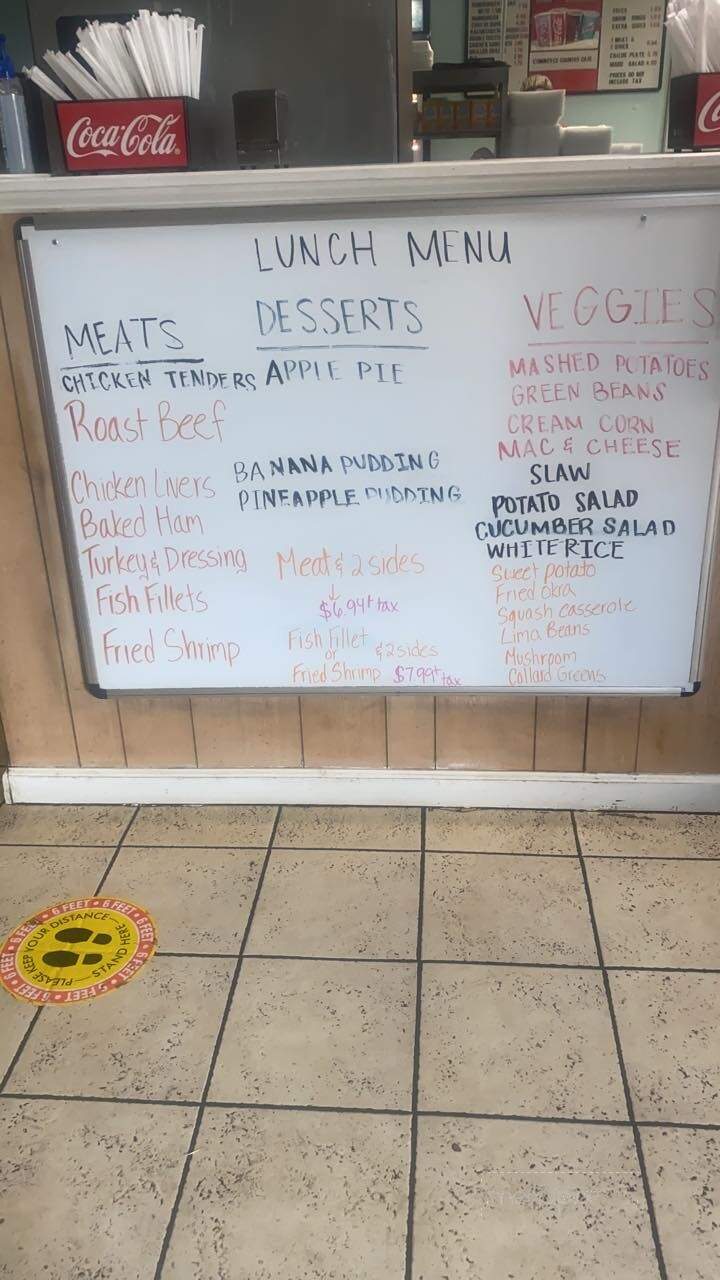 Coca-Cola
LUNCH MENU
MEATS
CHICKEN TENDERS
Roast Beef
Chicken Livers
Baked Ham
Turkey & Dressing
Fish Fillets
Fried Shrimp
DESSERTS
APPLE PIE
BANANA PUDDING
PINEAPPLE PUDDING
Meat & 2 sides
↓
$6.94+ tax
Fish Fillet
or & 2 sides
Fried Shrimp $7.99+ tax
VEGGIES
MASHED POTATOES
GREEN BEANS
CREAM CORN
MAC & CHEESE
SLAW
POTATO SALAD
CUCUMBER SALAD
WHITE RICE
Sweet potato
Fried Okra
Squash casserole
Lima Beans
Mushroom
Collard Greens
6 FEET • 6 FEET • 6 FEET
PLEASE KEEP YOUR DISTANCE
STAND HERE